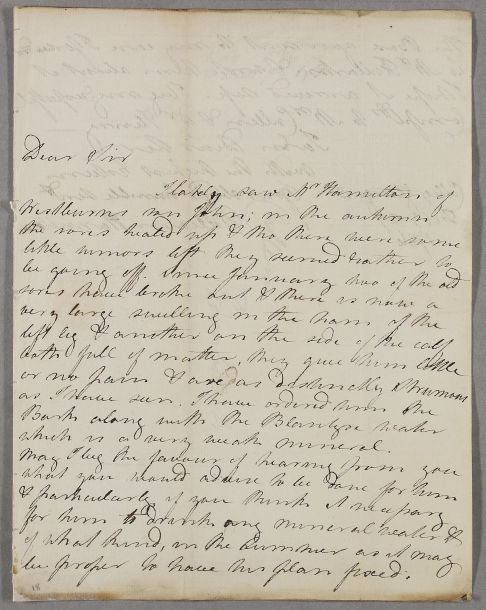 Dear Sir
I lately saw Mr Hamilton of
Westburns son John; in the autumn
the sores healed up & tho there were some
little tumors left they seemed rather to
be going off. Since January two of the old
sores have broke out & there is now a
very large swelling in the ham of the
left leg & another on the side of the calf
both full of matter, they give him little
or no pain & are as distinctly Strumous
as I have seen. I have ordered him the
Bark along with the Blantyre water
which is a very weak mineral.
May I beg the favour of hearing from you
what you would advise to be done for him
& particularly if you think it necessary
for him to drink any mineral water &
of what kind, in the Summer as it may
be proper to have his plan fixed.